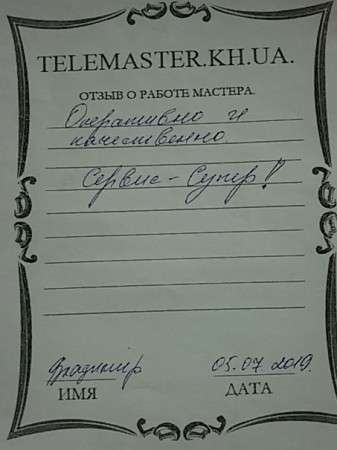 TELEMASTER.KH.UA.
ОТЗЫВ О РАБОТЕ МАСТЕРА.
Оперативно и
качественно.
Сервис - Супер!
Владимир 05.07.2019.
ИМЯ ДАТА